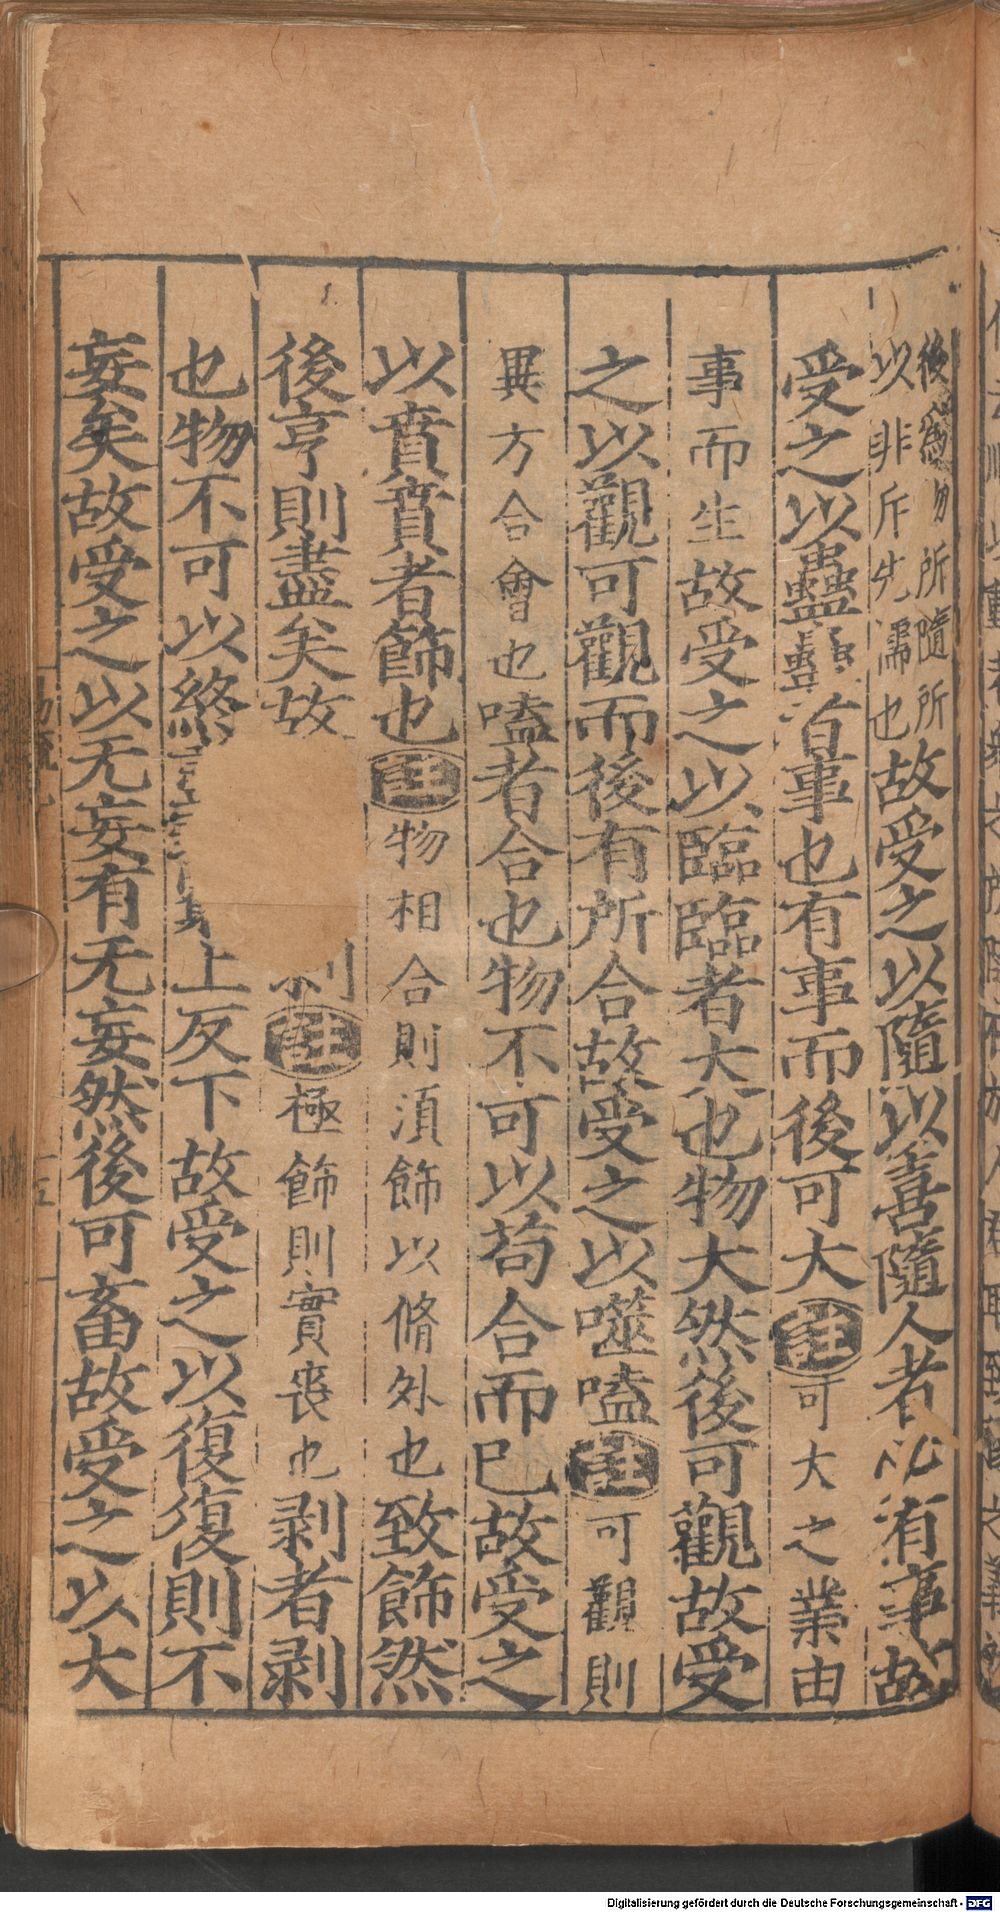 後爲所隨所
以非斥先儒也故受之以隨以喜隨人者必有事故
受之以蠱蠱者事也有事而後可大註可大之業由
事而生故受之以臨臨者大也物大然後可觀故受
之以觀可觀而後有所合故受之以噬嗑註可觀則
異方合會也嗑者合也物不可以苟合而已故受之
以賁賁者飾也註物相合則須飾以脩外也致飾然
後亨則盡矣故剝註極飾則實喪也剥者剥
也物不可以終上反下故受之以復復則不
妄矣故受之以无妄有无妄然後可畜故受之以大
Digitalisierung gefördert durch die Deutsche Forschungsgemeinschaft - DFG